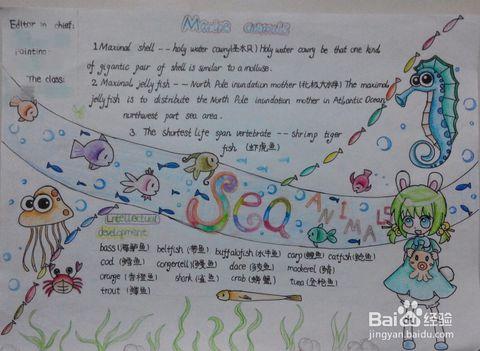 Editor in chief:
Painting:
The class:
1. Maximal shell -- holy water cowry(圣水贝) Holy water cowry be that one kind
of gigantic pair of shell is similar to a mollusc.
2. Maximal jellyfish -- North Pole inundation mother The maximal
jellyfish is to distribute the North Pole inundation mother in Atlantic Ocean
northwest part sea area.
3. The shortest life span vertebrate -- shrimp tiger
fish (虾虎鱼)
Sea
ANIMALS
Intellectual
development
bass(鲈鱼) beltfish (带鱼) buffalofish (水牛鱼) carp(鲤鱼) catfish(鲶鱼)
cod (鳕鱼) conger(eel)(鳗鱼) dace (鲮鱼) mackerel (鲭)
orange (香橙鱼) shark (鲨鱼) crab (螃蟹) tuna (金枪鱼)
trout (鳟鱼)
Baidu 经验
jingyan.baidu.com